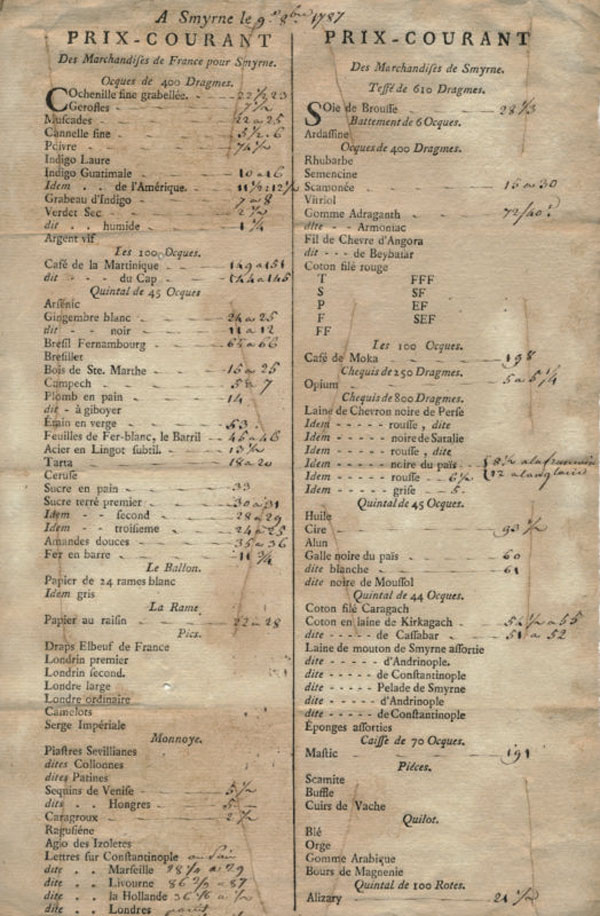 A Smyrne le 9. 8bre 1787
PRIX-COURANT
Des Marchandises de France pour Smyrne.
Ocques de 400 Dragmes.
COchenille fine grabellée. - 22 1/2 23
Gerofles - 7 1/2
Muscades - 22 a 25
Cannelle fine - 5 1/2 . 6
Poivre
Indigo Laure
Indigo Guatimale - 10 a 16
Idem . . de l'Amérique. - 11 1/2 : 12 1/2
Grabeau d'Indigo - 7 a 8
Verdet Sec - 2
dit . . humide - 1
Argent vif
Les 100 Ocques.
Café de la Martinique - 149 a 151
dit - - du Cap - 144 a 145
Quintal de 45 Ocques
Arsénic
Gingembre blanc - 24 a 25
dit - - noir - 11 a 12
Bresil Fernambourg - 65 a 66
Bresillet
Bois de Ste. Marthe - 15 a 25
Campech - 5 a 7
Plomb en pain - 14
dit - à giboyer
Étain en verge - 53
Feuilles de Fer-blanc, le Barril - 45 a 46
Acier en Lingot subtil. - 13 1/2
Tarta - 18 a 20
Ceruse
Sucre en pain - 33
Sucre terré premier - 30 a 31
Idem - - second - 28 a 29
Idem - - troisieme - 24 a 25
Amandes douces - 35 a 36
Fer en barre - 11 3/4
Le Ballon.
Papier de 24 rames blanc
Idem gris
La Rame.
Papier au raisin - 22 a 28
Pics.
Draps Elbeuf de France
Londrin premier
Londrin second.
Londre large
Londre ordinaire
Camelots
Serge Impériale
Monnoye.
Piastres Sevillianes
dites Colloones
dites Patines
Sequins de Venise - 5 1/2
dits . . Hongres - 5
Caragroux - 2 1/2
Ragusiéne
Agio des Izoletes
Lettres sur Constantinople au Pair
dite . . Marseille
dite . . Livourne
dite . . la Hollande
dite . . Londres
PRIX-COURANT
Des Marchandises de Smyrne.
Teffé de 610 Dragmes.
SOie de Brousse - 28 1/3
Battement de 6 Ocques.
Ardassine
Ocques de 400 Dragmes.
Rhubarbe
Semencine
Scamonée - 15 a 30
Vitriol
Gomme Adraganth
dite - - Armoniac
Fil de Chevre d'Angora
dit - - - de Beybazar
Coton filé rouge
T FFF
S SF
P EF
F SEF
FF
Les 100 Ocques.
Café de Moka - 198
Chequis de 250 Dragmes.
Opium - 5 a 5 1/4
Chequis de 800 Dragmes.
Laine de Chevron noire de Perse
Idem - - - - - rousse, dite
Idem - - - - - noire de Satalie
Idem - - - - - rousse, dite
Idem - - - - - noire du païs
Idem - - - - - rousse - 6 1/2
Idem - - - - - grise - 5.
Quintal de 45 Ocques.
Huile
Cire - 93 1/2
Alun
Galle noire du païs - 60
dite blanche - 61
dite noire de Moussol
Quintal de 44 Ocques.
Coton filé Caragach
Coton en laine de Kirkagach
dite - - - - - de Cassabar - 51 a 52
Laine de mouton de Smyrne assortie
dite - - - - - d'Andrinople.
dite - - - - - de Constantinople
dite - - - - - Pelade de Smyrne
dite - - - - - d'Andrinople
dite - - - - - de Constantinople
Éponges assorties
Caisse de 70 Ocques.
Mastic - 191
Piéces.
Scamite
Buffle
Cuirs de Vache
Quilot.
Blé
Orge
Gomme Arabique
Bours de Magnenie
Quintal de 100 Rotes.
Alizary - 21 1/2